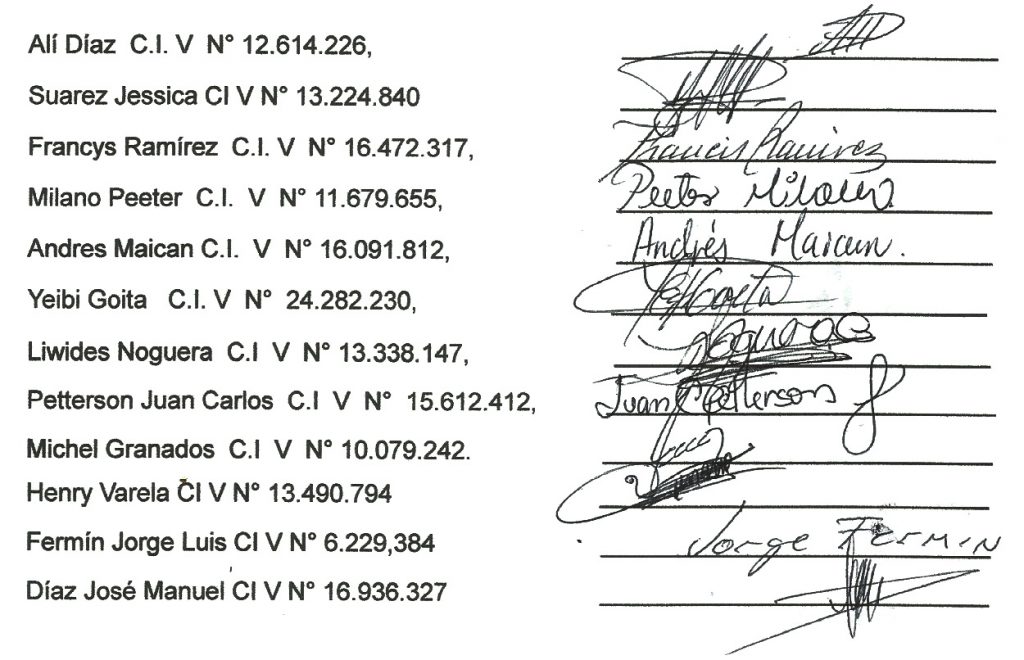 Alí Díaz C.I. V N° 12.614.226,
Suarez Jessica CI V N° 13.224.840
Francys Ramírez C.I. V N° 16.472.317, Francis Ramirez
Milano Peeter C.I. V N° 11.679.655, Peeter Milano
Andres Maican C.I. V N° 16.091.812, Andrés Maican.
Yeibi Goita C.I. V N° 24.282.230, Goita
Liwides Noguera C.I V N° 13.338.147, Noguera
Petterson Juan Carlos C.I V N° 15.612.412, Juan C Petterson
Michel Granados C.I V N° 10.079.242.
Henry Varela CI V N° 13.490.794
Fermín Jorge Luis CI V N° 6.229,384 Jorge Fermin
Díaz José Manuel CI V N° 16.936.327